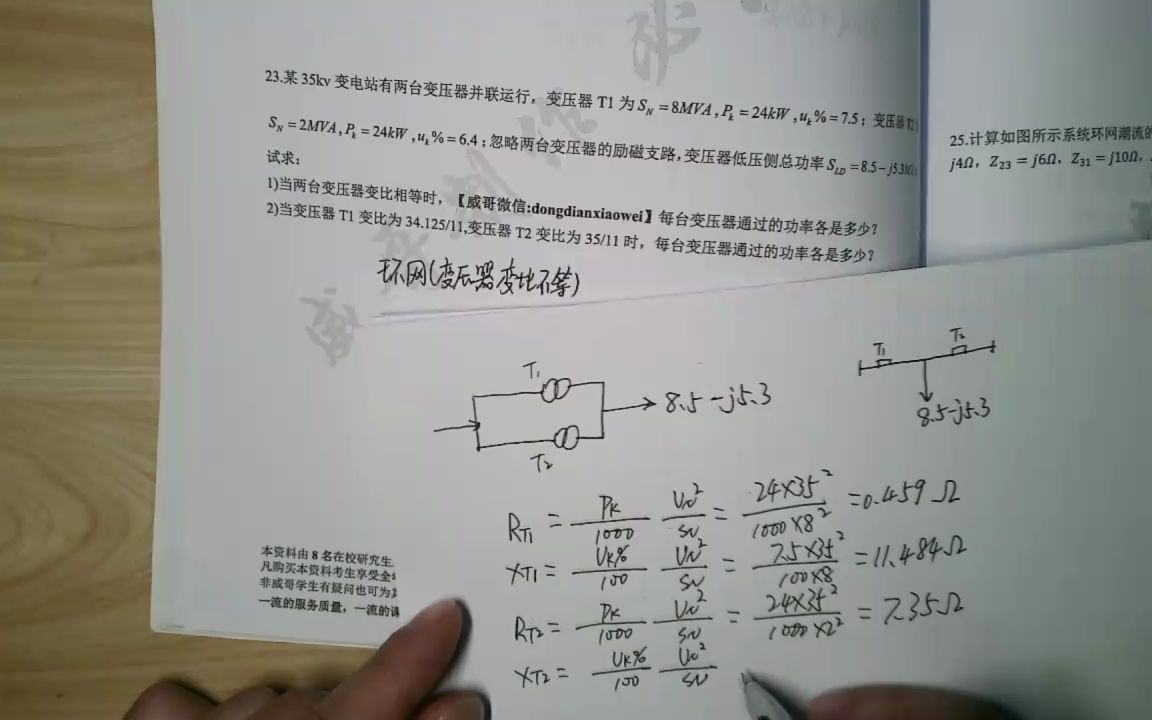 23.某 35kv 变电站有两台变压器并联运行，变压器 T1 为 S_N = 8MVA, P_k = 24kW, u_k% = 7.5；变压器T2
S_N = 2MVA, P_k = 24kW, u_k% = 6.4；忽略两台变压器的励磁支路,变压器低压侧总功率 S_LD = 8.5 - j5.3M
试求：
1)当两台变压器变比相等时，【威哥微信:dongdianxiaowei】每台变压器通过的功率各是多少？
2)当变压器 T1 变比为 34.125/11,变压器 T2 变比为 35/11 时，每台变压器通过的功率各是多少？
环网(变压器变比不等)
25.计算如图所示系统环网潮流的
j4Ω，Z23 = j6Ω，Z31 = j10Ω，
T1
8.5-j5.3
T2
T1 T2
8.5-j5.3
RT1 = PK/1000 UN²/SN = 24×35²/1000×8² = 0.459Ω
XT1 = UK%/100 UN²/SN = 7.5×35²/100×8 = 11.484Ω
RT2 = PK/1000 UN²/SN = 24×35²/1000×2² = 7.35Ω
XT2 = UK%/100 UN²/SN
本资料由 8 名在校研究生
凡购买本资料考生享受全
非威哥学生有疑问也可为
一流的服务质量，一流的课